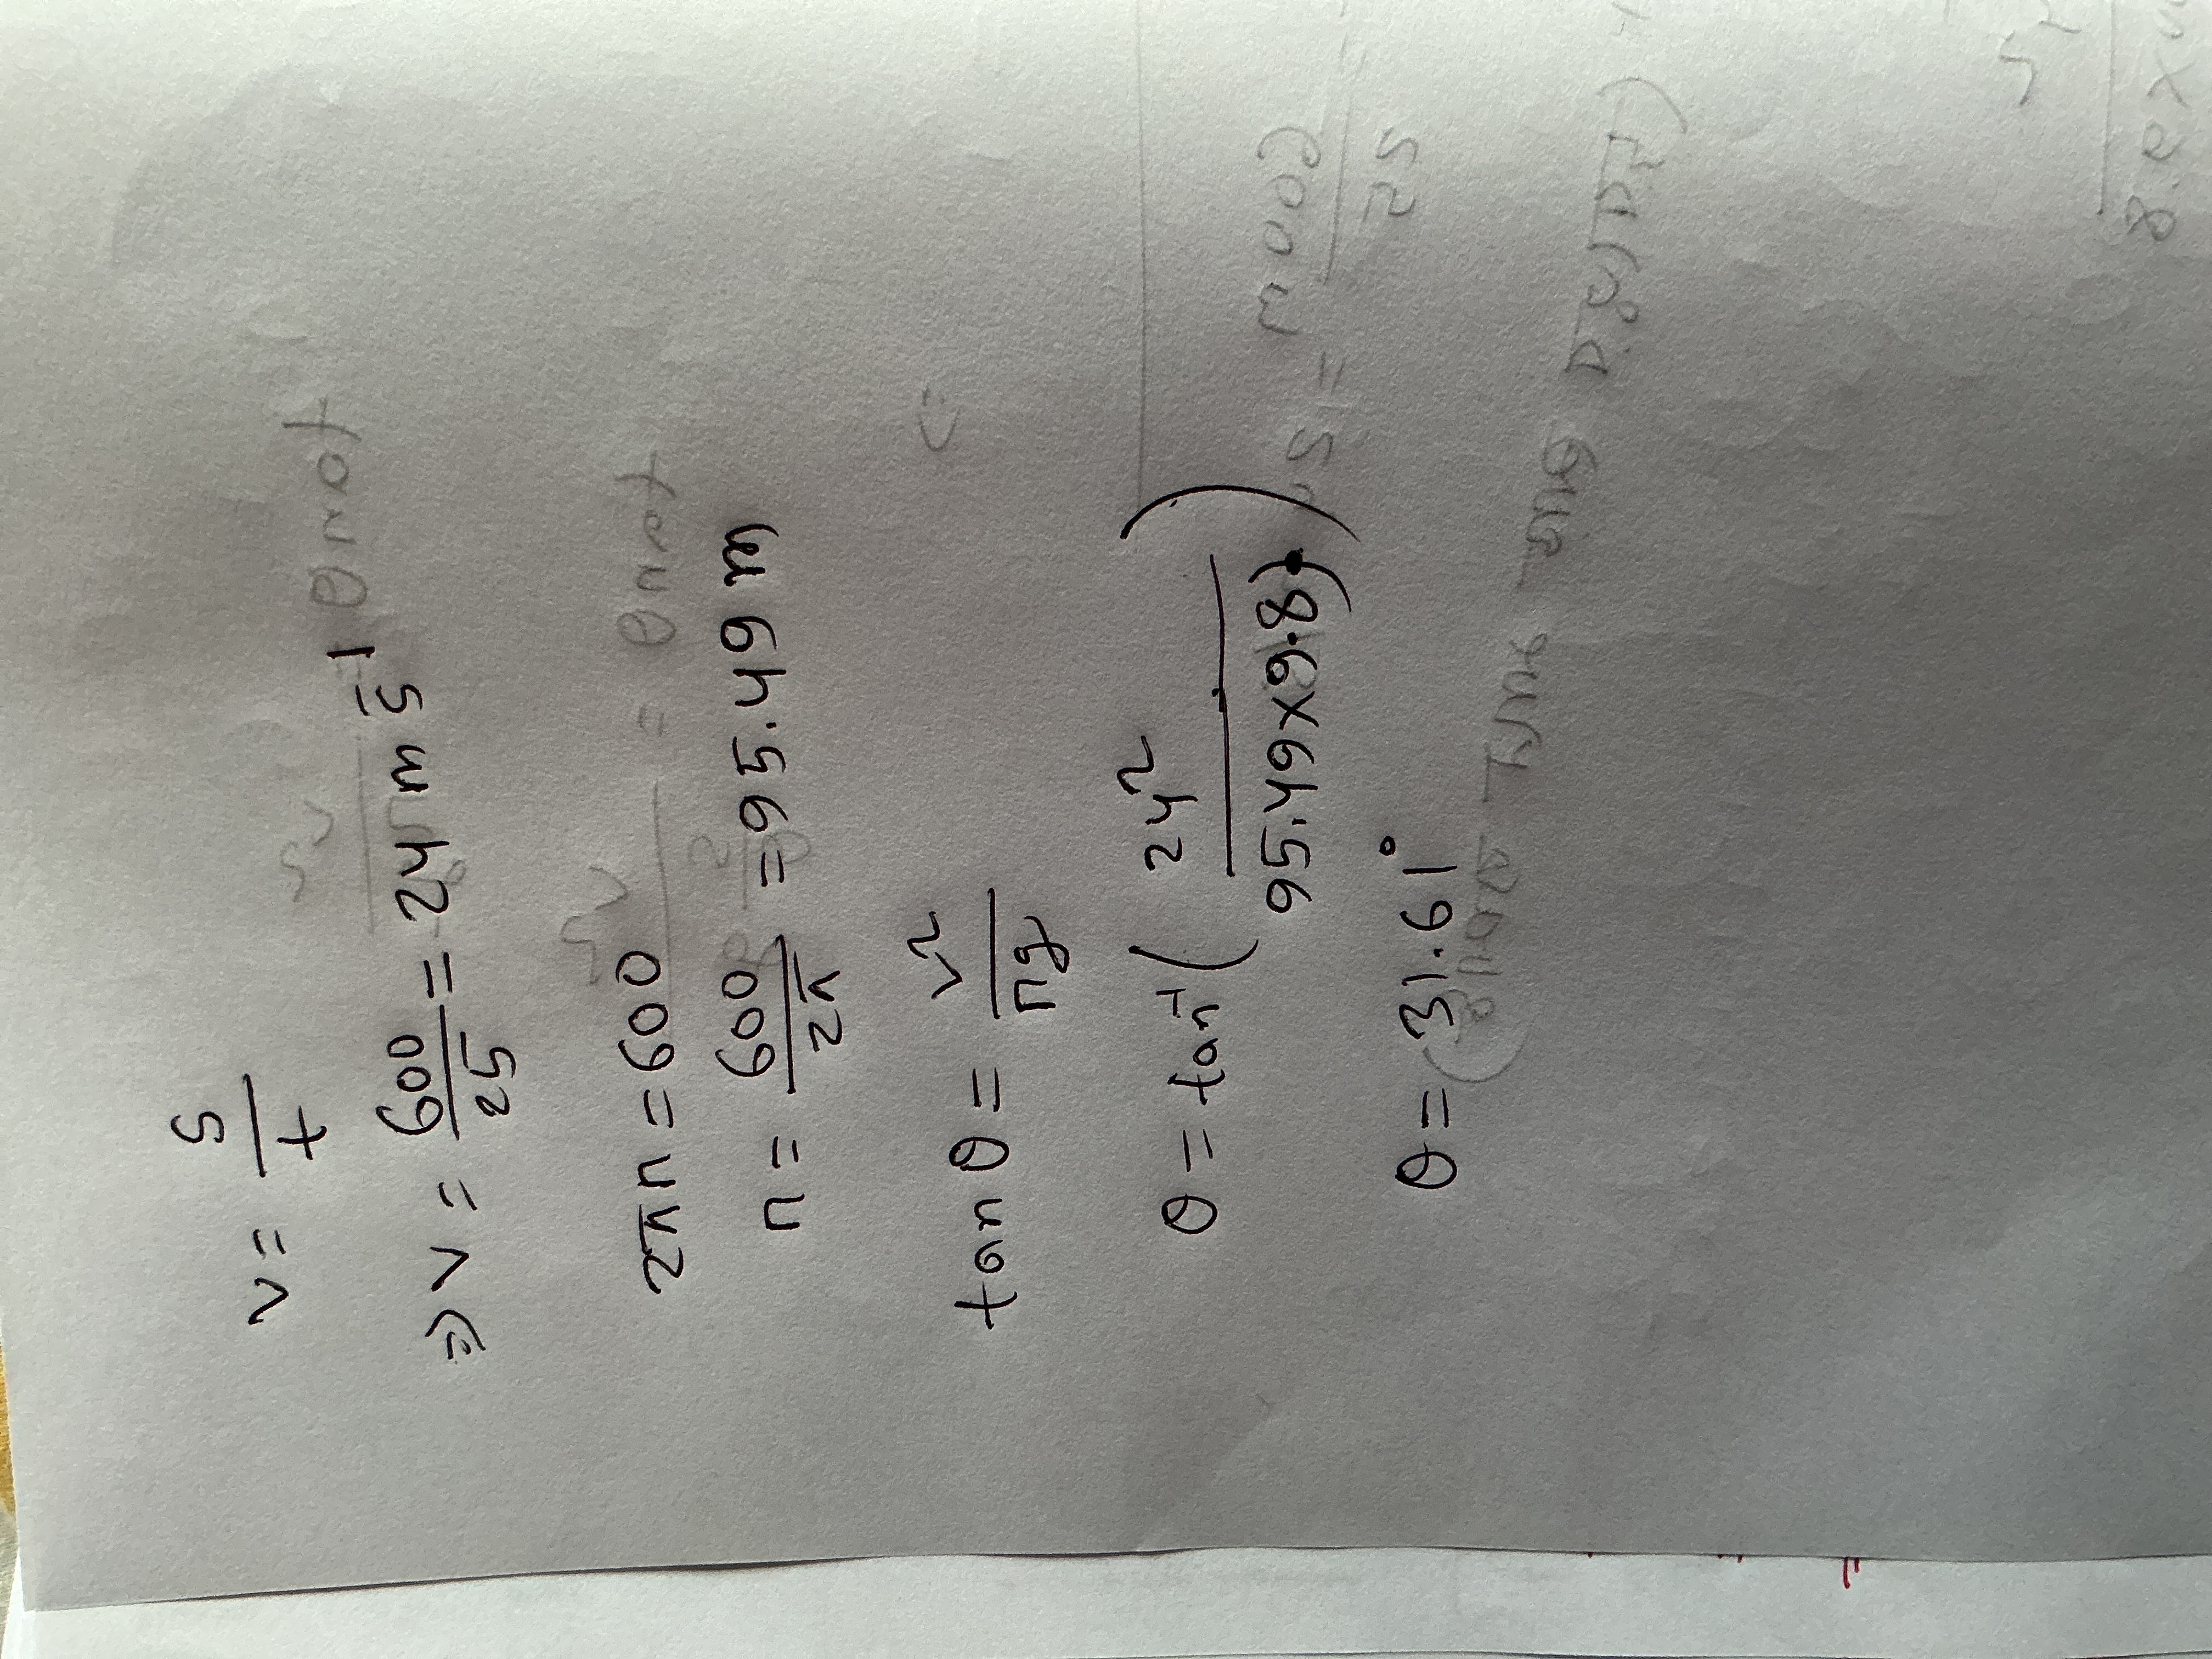 v = s/t
⇒ v = 600/25 = 24 m s⁻¹
2πr = 600
r = 600/2π = 95.49 m
tan θ = v²/rg
θ = tan⁻¹ ( 24² / 95.49×9.8) )
θ = 31.61°